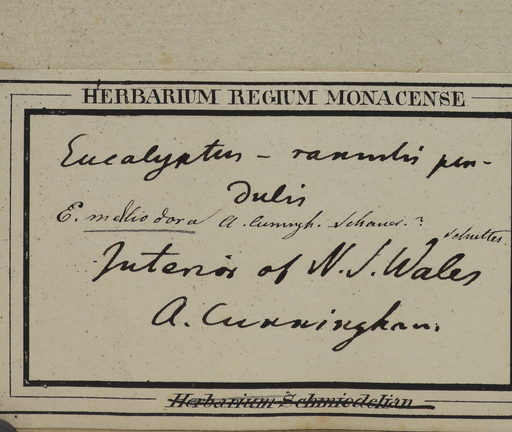 HERBARIUM REGIUM MONACENSE
Eucalyptus – ramulis pen-
dulis
E. melliodora A. Cunngh. Schauer. ?
Schultes.
Interior of N. S. Wales
A. Cunningham.
Herbarium Schmiedelian